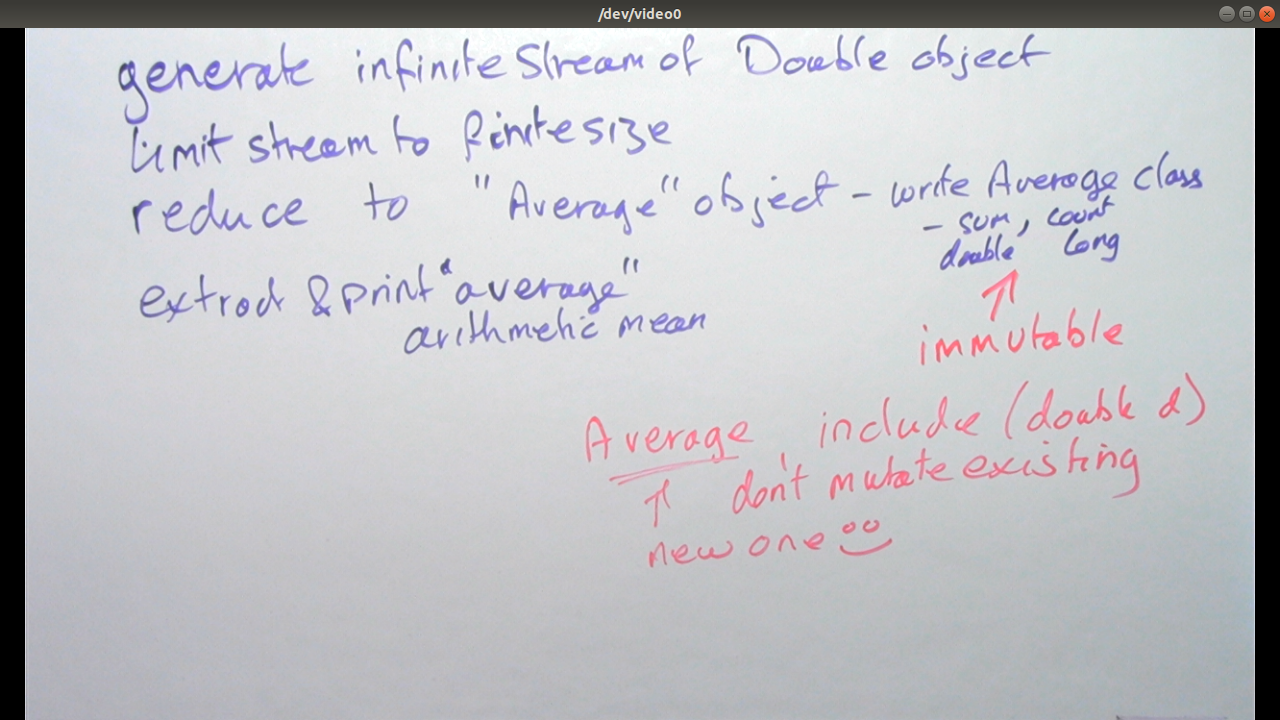 /dev/video0
generate infinite Stream of Double object
limit stream to finite size
reduce to "Average" object - write Average class
- sum, count
double long
extract & print "average"
arithmetic mean
immutable
Average include (double d)
don't mutate existing
new one